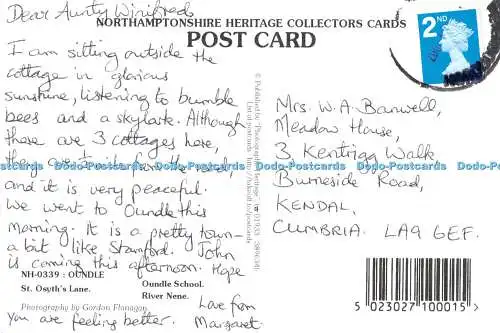 Dear Aunty Winifred
NORTHAMPTONSHIRE HERITAGE COLLECTORS CARDS
POST CARD
2ND
I am sitting outside the
cottage in glorious
sunshine, listening to bumble
bees and a skylark. Although
there are 3 cottages here,
and it is very peaceful.
We went to Oundle this
morning. It is a pretty town -
a bit like Stamford. John
is coming this afternoon. Hope
NH-0339 : OUNDLE
St. Osyth's Lane.
Oundle School.
River Nene.
Photography by Gordon Flanagan
Love from
you are feeling better. Margaret.
Mrs. W. A. Banwell,
Meadow House,
3, Kentrigg Walk
Burneside Road,
KENDAL,
CUMBRIA. LA9 6EF.
5 023027 100015 >
Dodo-Postcards Dodo-Postcards Dodo-Postcards